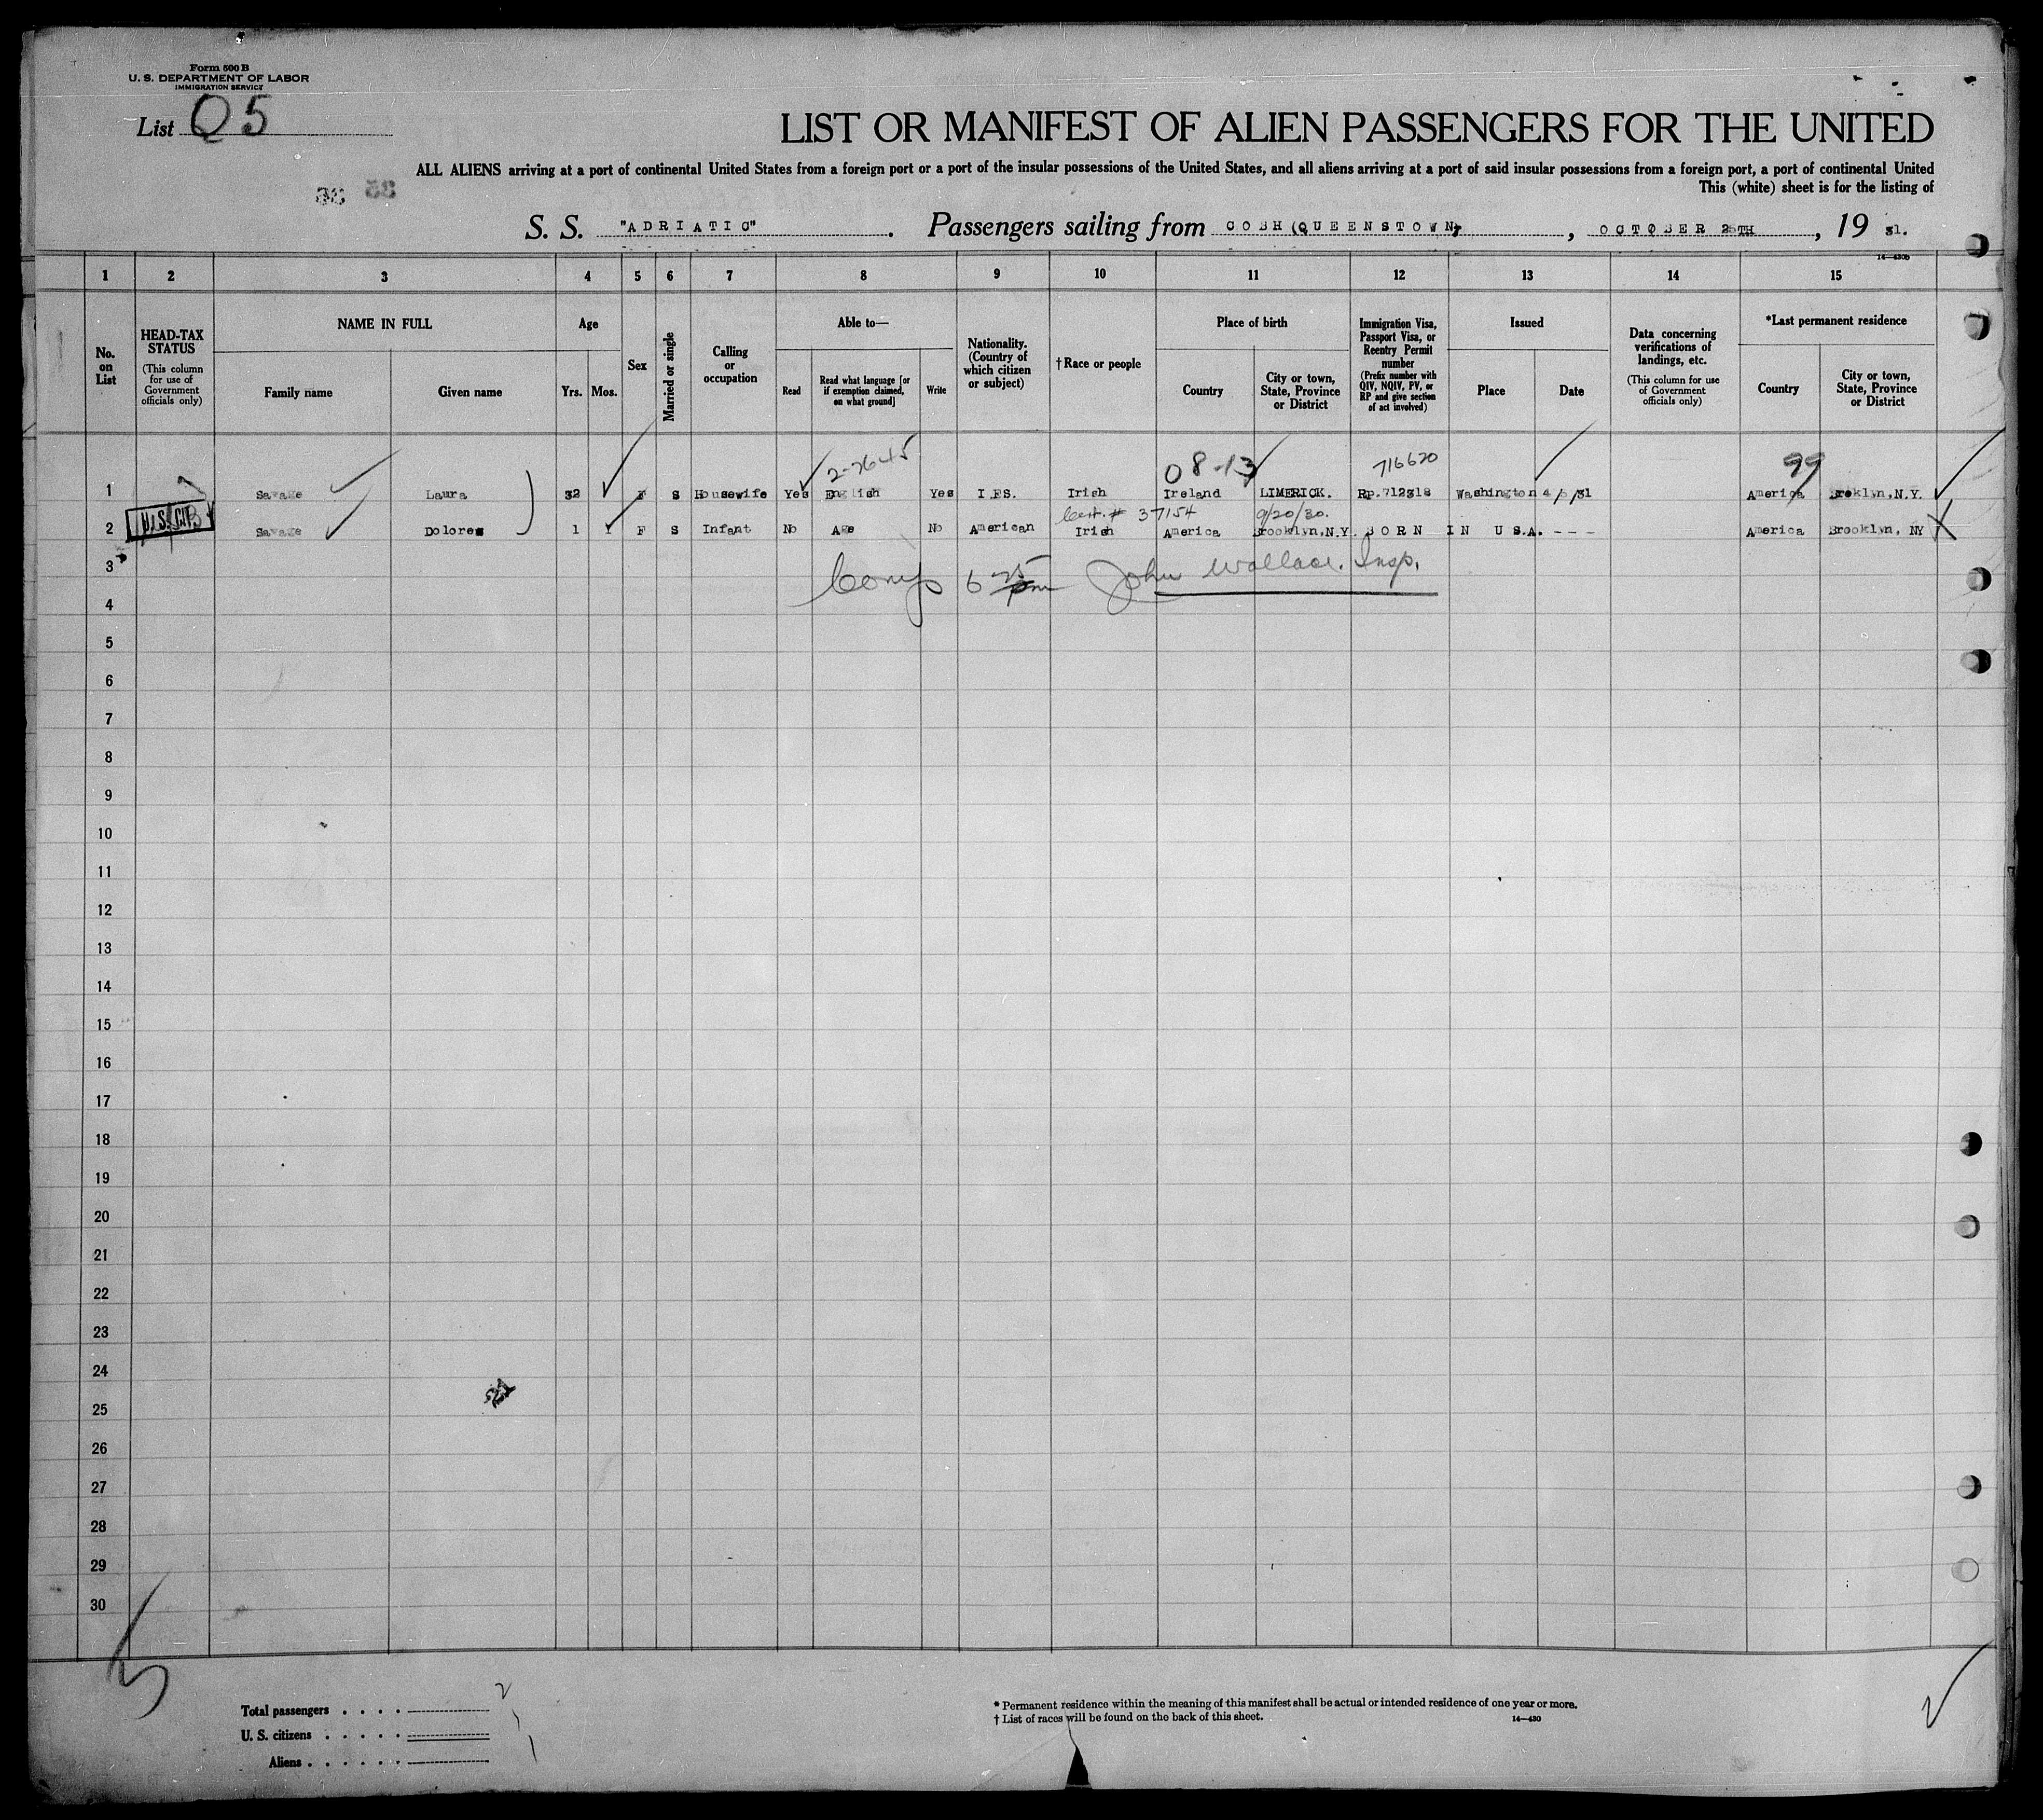 Form 500 B
U. S. DEPARTMENT OF LABOR
IMMIGRATION SERVICE
List Q5
LIST OR MANIFEST OF ALIEN PASSENGERS FOR THE UNITED
ALL ALIENS arriving at a port of continental United States from a foreign port or a port of the insular possessions of the United States, and all aliens arriving at a port of said insular possessions from a foreign port, a port of continental United
This (white) sheet is for the listing of
S. S. "ADRIATIC". Passengers sailing from COBH (QUEENSTOWN), OCTOBER 25TH, 19 31.
14—430b
1 2 3 4 5 6 7 8 9 10 11 12 13 14 15
No. on List
HEAD-TAX STATUS (This column for use of Government officials only)
NAME IN FULL
Family name Given name
Age
Yrs. Mos.
Sex
Married or single
Calling or occupation
Able to—
Read Read what language [or if exemption claimed, on what ground] Write
Nationality. (Country of which citizen or subject)
† Race or people
Place of birth
Country City or town, State, Province or District
Immigration Visa, Passport Visa, or Reentry Permit number (Prefix number with QIV, NQIV, PV, or RP and give section of act involved)
Issued
Place Date
Data concerning verifications of landings, etc. (This column for use of Government officials only)
*Last permanent residence
Country City or town, State, Province or District
2-2645 08-13 716620 99
1 Savage Laura 32 F S Housewife Yes English Yes I.FS. Irish Ireland LIMERICK. Rp.712318 Washington 4/5/31 America Broklyn,N.Y.
Cert. # 37154 9/20/30.
2 U.S. CIT Savage Dolores 1 1 F S Infant No Age No American Irish America Brooklyn,N.Y. BORN IN U S.A. - - - America Brooklyn, NY
3 Comp 6 25 pm John Wallace. Insp.
4
5
6
7
8
9
10
11
12
13
14
15
16
17
18
19
20
21
22
23
24
25
26
27
28
29
30
Total passengers . . . . 2
U. S. citizens . . . . . 1
Aliens . . . . . . 1
* Permanent residence within the meaning of this manifest shall be actual or intended residence of one year or more.
† List of races will be found on the back of this sheet.
14—430